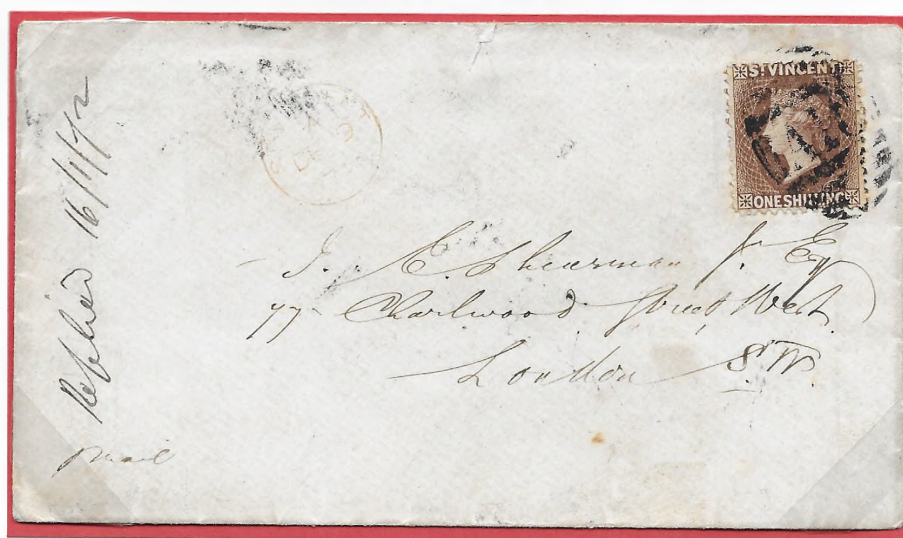 Replied 16/1/72
ST VINCENT
ONE SHILLING
J. E. Shearman Jr. Esq
77 Charlwood Street West
London S.W.
mail